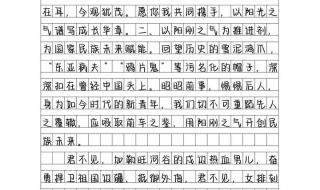 在耳，今观犹茂。愿你我共同携手，以阳光之
气谱写成长华章。二、以阳刚之气为推进剂，
为国家民族未来赋能。回望历史的雪泥鸿爪，
“东亚病夫”“鸦片鬼”等污名化的帽子，深
深扣在曾经中国头上。昭昭前事，惕惕后人，
身为如今时代的新青年，我们切不可重蹈先人
之覆辙，应吸取前车之鉴，用阳刚之气开创民
族未来。
君不见，加勒旺河谷的戍边热血男儿，奋
勇捍卫祖国边疆，抵御外侮，君不见，女排到